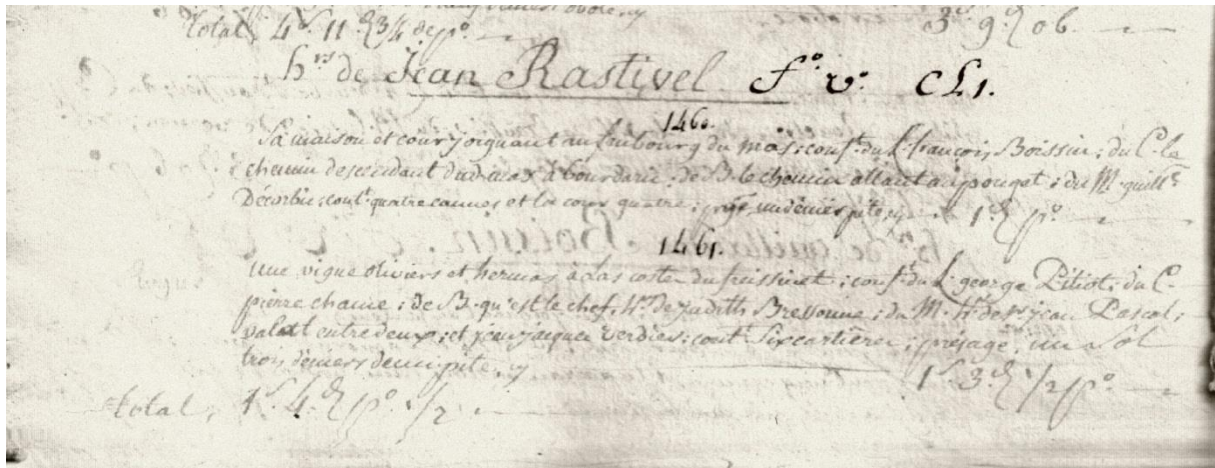 total, 4 s. 11 d 3/4 de po. 3 s. 9 d ob.
hrs de Jean Rastivel fo. vo. CL1.
1460.
Sa maison et cour joignant au faubourg du mas; conf. du L. françois Boissin; du C. le
chemin descendant dud. mas à bourdaric; de B. le chemin allant au pouget; du M. guille
Décorbis; cont. quatre cannes et la cour quatre; un denier pite, 1 d po.
1461.
Une vigne oliviers et hermas à las coste du fraissinet; conf. du L. george Pitiot; du C.
pierre chame; de B. qu'est le chef, hrs de Judith Bressonne; du M. hrs de jean Pascal;
valat entre deux; et jean jaques verdier; cont. six cartières; présage, un sol
trois deniers demi pite, 1 s. 3 d 1/2 po.
total, 1 s. 4 d po. 1/2